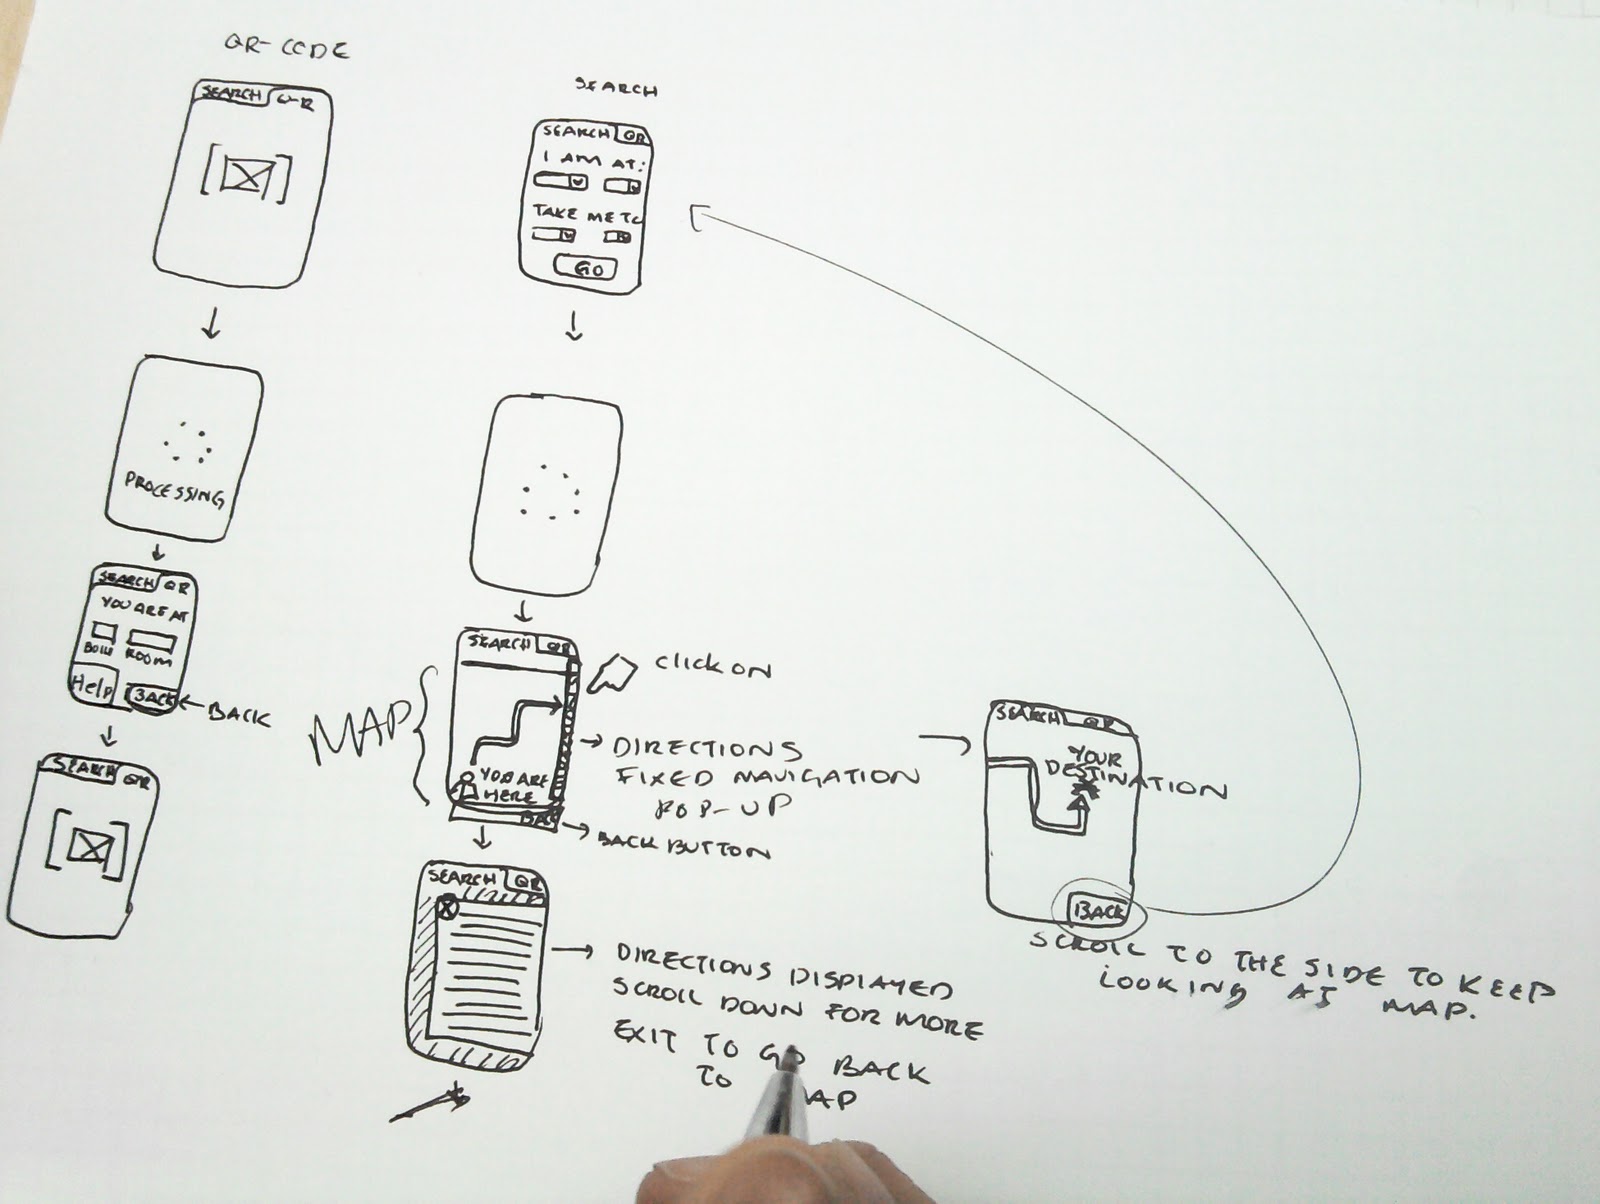 QR-CODE
SEARCH QR
PROCESSING
SEARCH QR
YOU ARE AT
ROOM
Help BACK
BACK
SEARCH QR
SEARCH
SEARCH QR
I AM AT:
TAKE ME TO
GO
SEARCH QR
click on
MAP
YOU ARE
HERE
DIRECTIONS
FIXED NAVIGATION
POP-UP
BACK
BACK BUTTON
SEARCH QR
X
DIRECTIONS DISPLAYED
SCROLL DOWN FOR MORE
EXIT TO GO BACK
TO
SEARCH QR
YOUR
DESTINATION
BACK
SCROLL TO THE SIDE TO KEEP
LOOKING AT MAP.